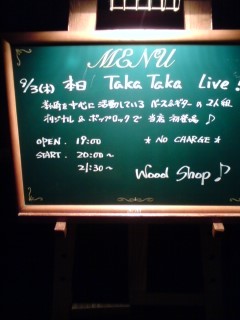 MENU
9/3(木) 本日 Taka Taka Live!
を中心に活動している ベース&ギターの2人組
オリジナル & ポップロックで 当店 初登場♪
OPEN. 19:00 ★ NO CHARGE ★
START. 20:00~
21:30~
Wood Shop♪